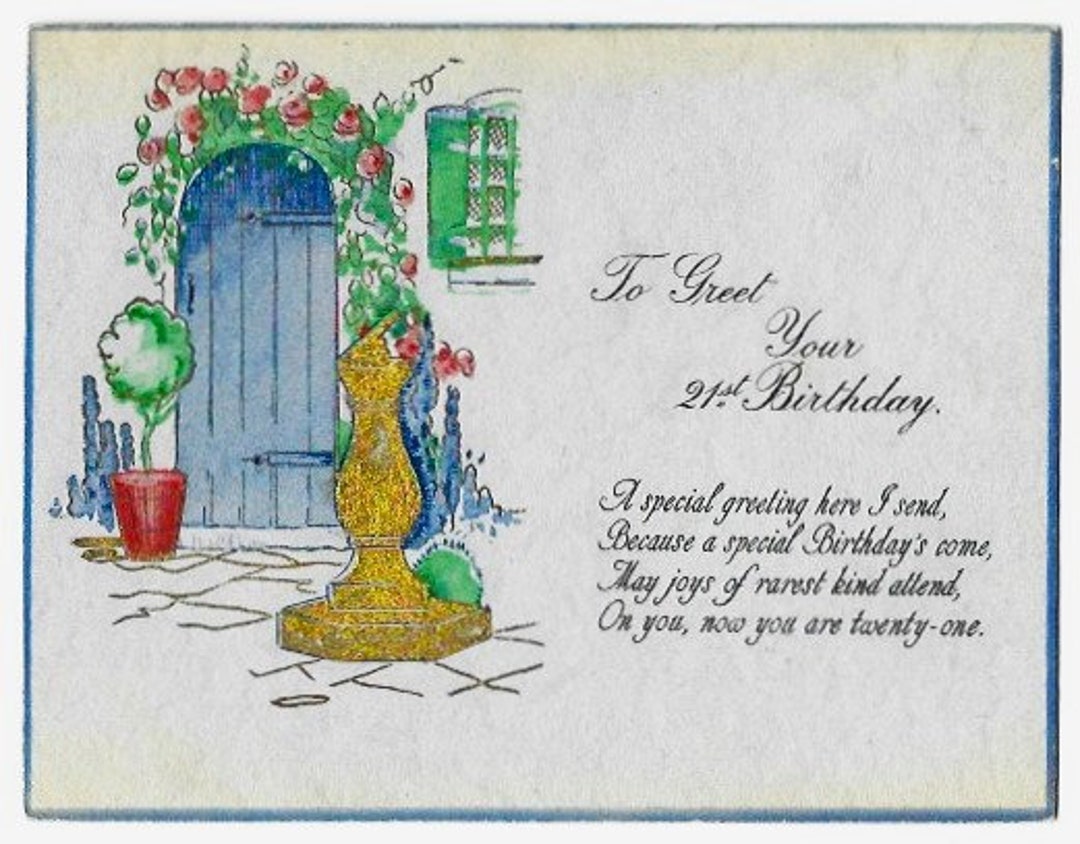 To Greet
Your
21st Birthday.
A special greeting here I send,
Because a special Birthday's come,
May joys of rarest kind attend,
On you, now you are twenty-one.